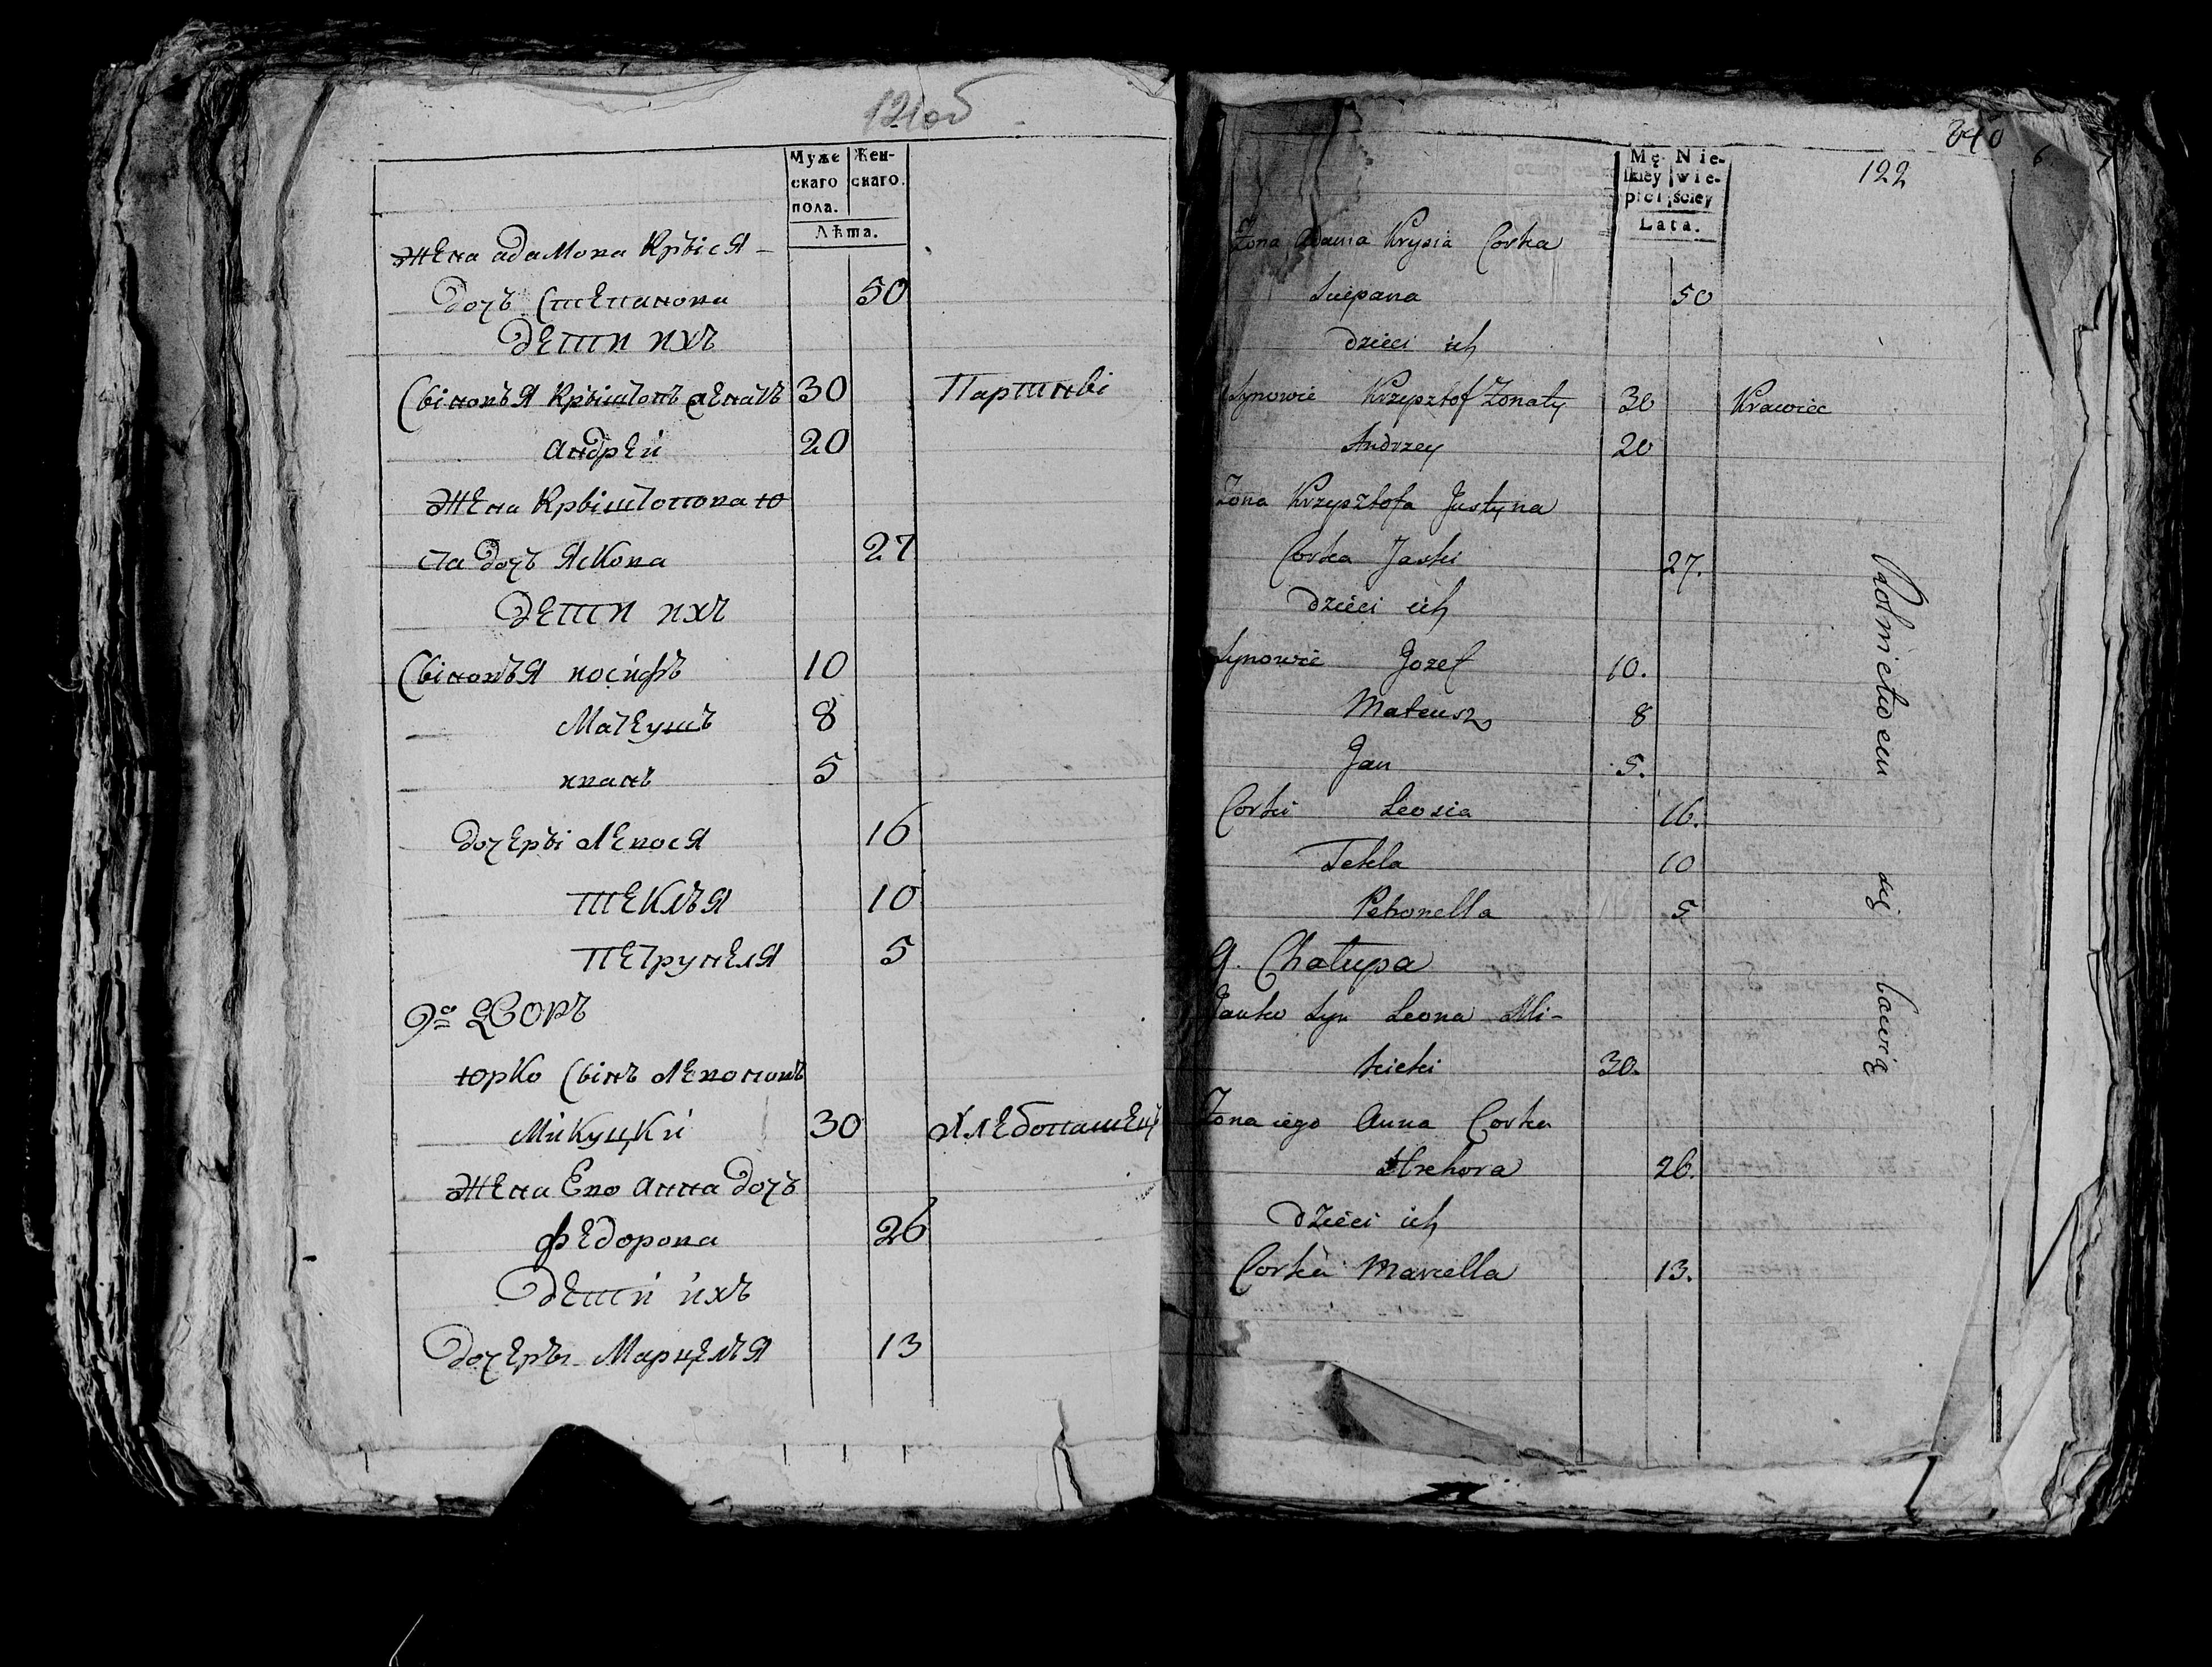 121об
Муже Жен-
скаго скаго.
пола.
Лѣта.
жена адамова Крыся
дочъ Степанова 50
дети ихъ
Сыновья Крыштопъ женатъ 30 Партный
Андрей 20
жена Крыштопова ю
ста дочъ Яскова 27
дети ихъ
Сыновья иосифъ 10
Матеушъ 8
иванъ 5
дочеры Левося 16
текля 10
петрунеля 5
9о дворъ
юрко сынъ Левоновъ
Микуцки 30 хлебопашецъ
жена Ево анна дочъ
федорова 26
дети ихъ
дочеръ Марцеля 13
240
122
Mę- Nie-
skiey wie-
płci ściey
Lata.
Zona Adama Krysia Corka
Sciepana 50
dzieci ich
Synowie Krzysztof Zonaty 30 Krawiec
Andrzey 20
Zona Krzysztofa Justyna
Corka Jaski 27.
dzieci ich
Synowie Jozef 10.
Mateusz 8
Jan 5.
Corki Leosia 16.
Tekla 10
Petronella 5
9. Chałupa
Jurko Syn Leona Mi-
kucki 30.
Zona iego Anna Corka
26.
dzieci ich
Corka Marcella 13.
Rolnictwem się bawią